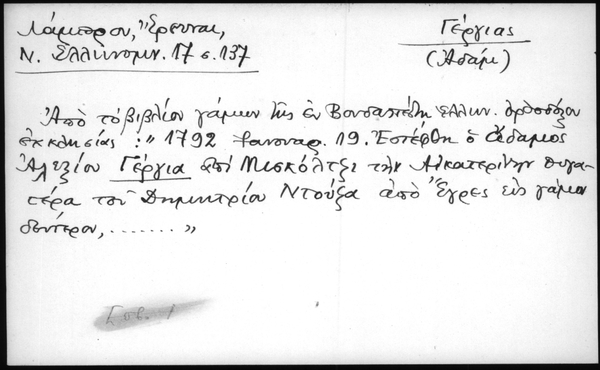 Λάμπρου, Ἔρευναι,
Ν. Ἑλληνομν. 17 σ. 137
Γέργιας
(Ἀδάμ)
Ἀπὸ τὸ βιβλίον γάμων τῆς ἐν Βουδαπέστῃ ἑλλην. ὀρθοδόξου
ἐκκλησίας : „ 1792 Ἰανουαρ. 19. Ἐστέφθη ὁ Ἀδάμιος
Ἀλεξίου Γέργια ἀπὸ Μισκόλτζι τὴν Αἰκατερίνην θυγα-
τέρα τοῦ Δημητρίου Ντούζα ἀπὸ Ἔγρες εἰς γάμον
δεύτερον, ....... „